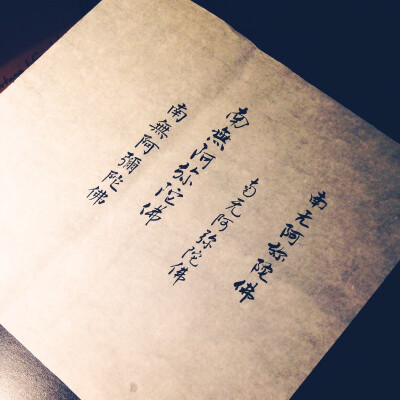 南无阿弥陀佛
南无阿弥陀佛
南無阿弥陀佛
南無阿彌陀佛